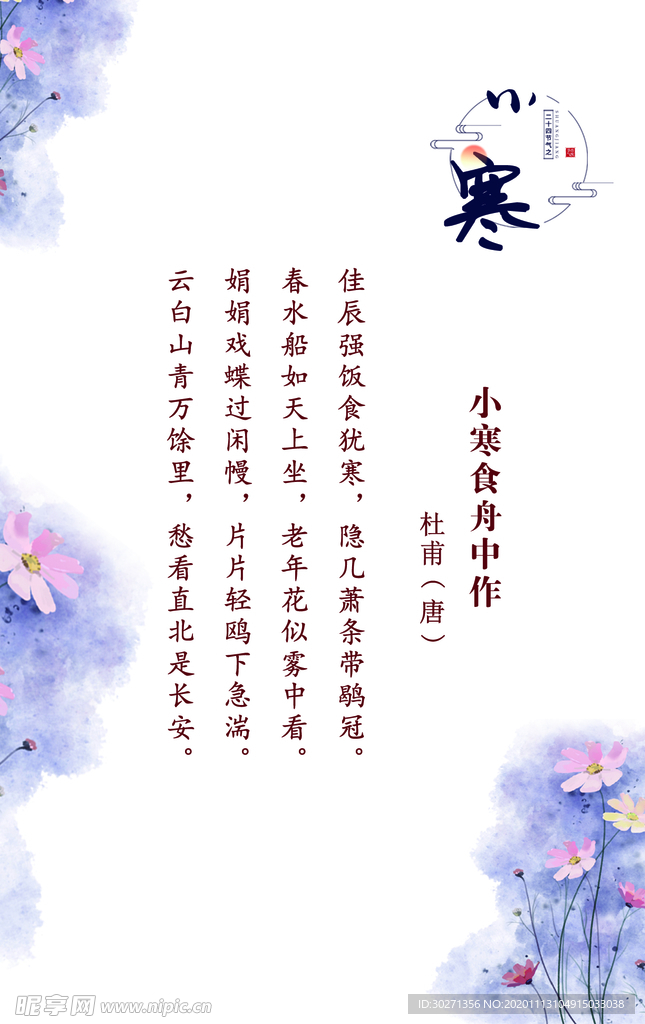 小寒
二十四节气之
SHUANGJIANG
小寒食舟中作
杜甫（唐）
佳辰强饭食犹寒，隐几萧条带鹖冠。
春水船如天上坐，老年花似雾中看。
娟娟戏蝶过闲慢，片片轻鸥下急湍。
云白山青万馀里，愁看直北是长安。
昵享网 www.nipic.cn
ID:30271356 NO:20201113104915033038